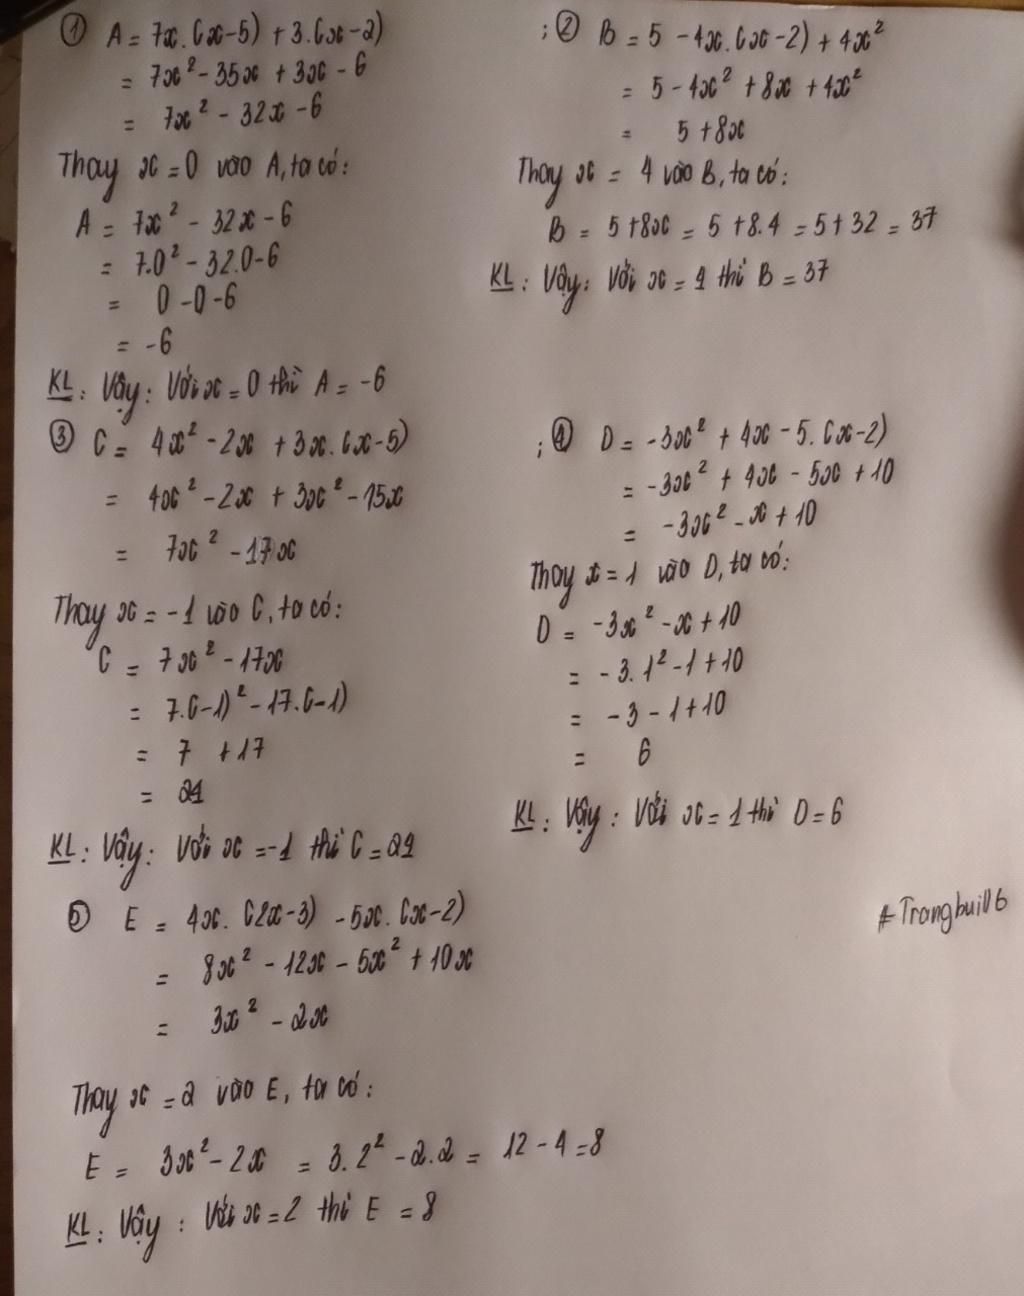 ① A = 7x.(x-5) + 3.(x-2)
= 7x² - 35x + 3x - 6
= 7x² - 32x - 6
Thay x = 0 vào A, ta có:
A = 7x² - 32x - 6
= 7.0² - 32.0 - 6
= 0 - 0 - 6
= -6
KL: Vậy: Với x = 0 thì A = -6
; ② B = 5 - 4x.(x-2) + 4x²
= 5 - 4x² + 8x + 4x²
= 5 + 8x
Thay x = 4 vào B, ta có:
B = 5 + 8x = 5 + 8.4 = 5 + 32 = 37
KL: Vậy: Với x = 4 thì B = 37
③ C = 4x² - 2x + 3x.(x-5)
= 4x² - 2x + 3x² - 15x
= 7x² - 17x
Thay x = -1 vào C, ta có:
C = 7x² - 17x
= 7.(-1)² - 17.(-1)
= 7 + 17
= 24
KL: Vậy: Với x = -1 thì C = 24
; ④ D = -3x² + 4x - 5.(x-2)
= -3x² + 4x - 5x + 10
= -3x² - x + 10
Thay x = 1 vào D, ta có:
D = -3x² - x + 10
= -3.1² - 1 + 10
= -3 - 1 + 10
= 6
KL: Vậy: Với x = 1 thì D = 6
⑤ E = 4x.(2x-3) - 5x.(x-2)
= 8x² - 12x - 5x² + 10x
= 3x² - 2x
Thay x = 2 vào E, ta có:
E = 3x² - 2x = 3.2² - 2.2 = 12 - 4 = 8
KL: Vậy: Với x = 2 thì E = 8